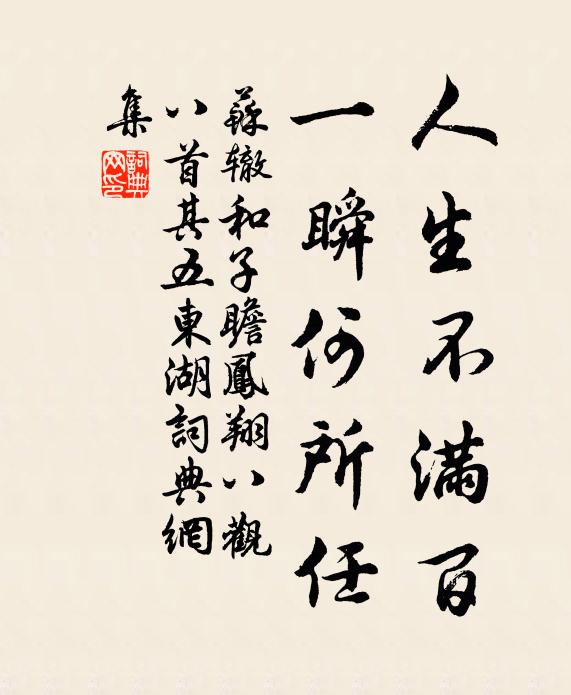 人生不滿百
一瞬何所任
蘇辙和子瞻鳳翔八觀
八首其五東湖詞典網
集
詞典
网印